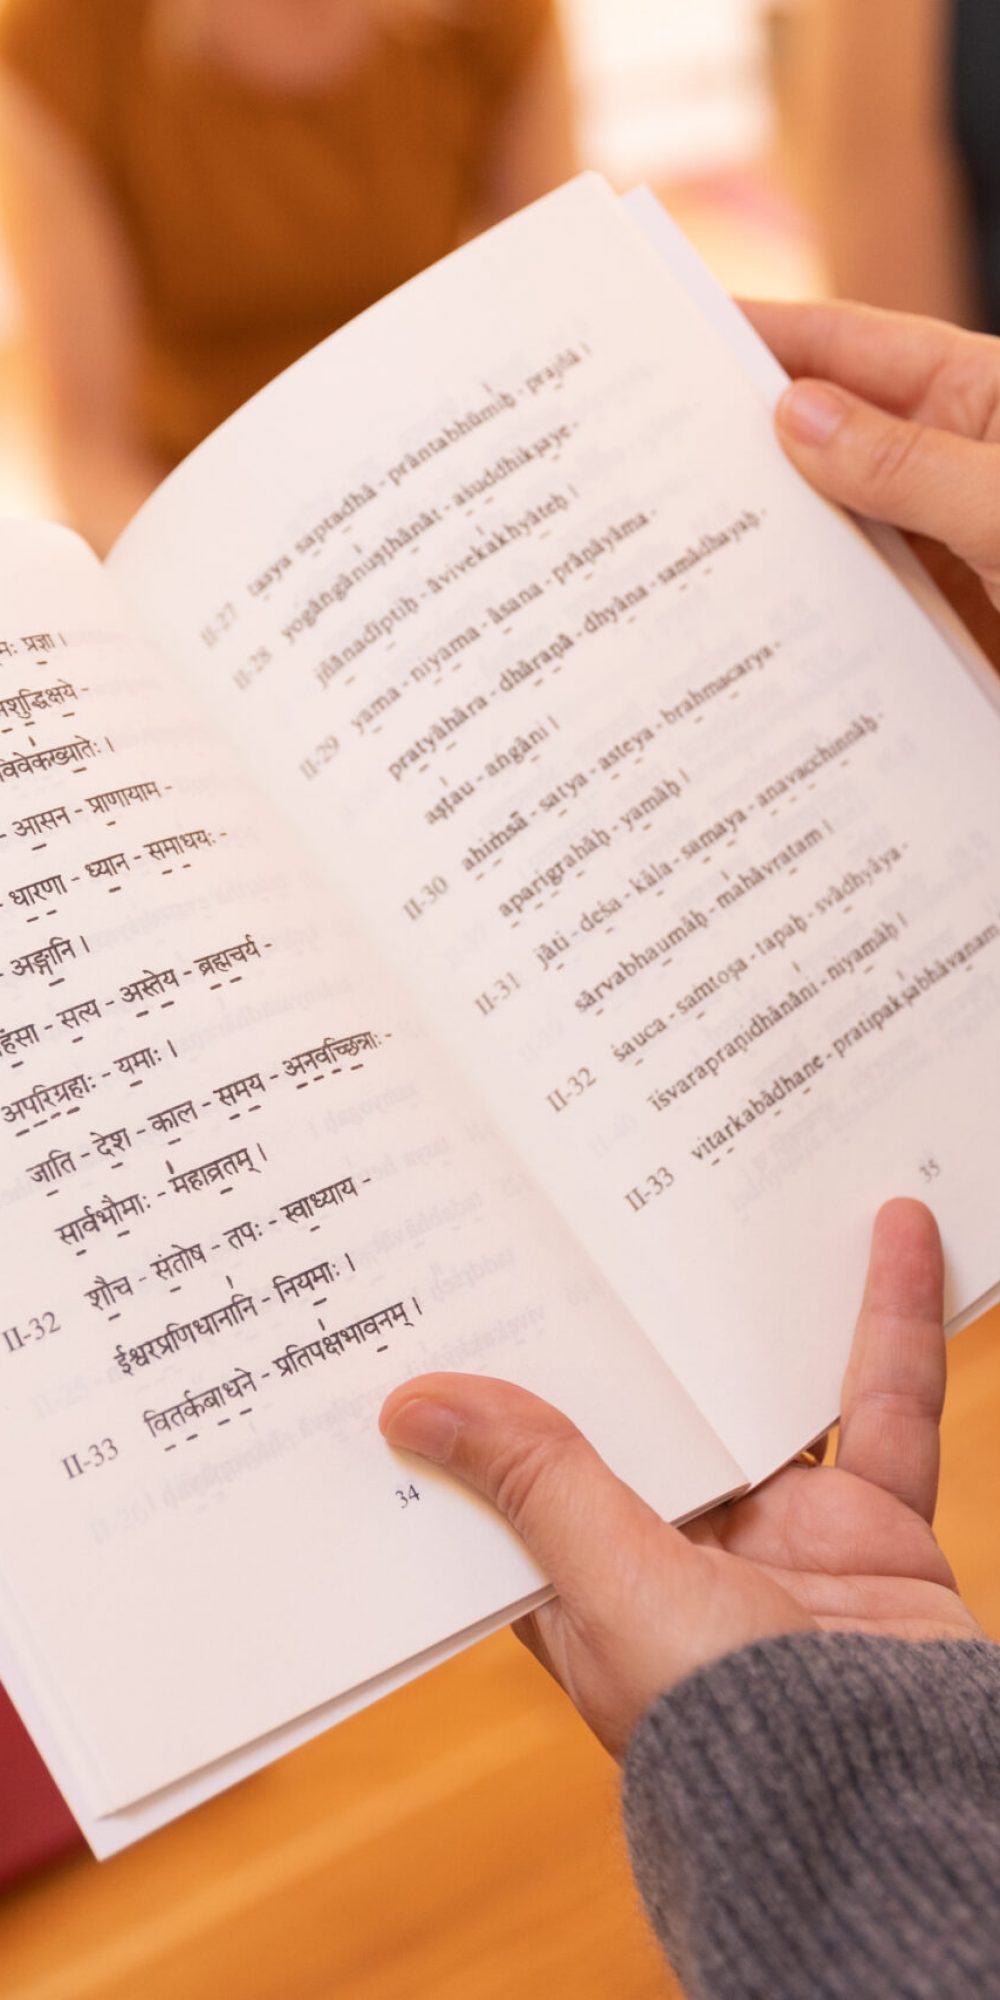 मः प्रज्ञा ।
शुद्धिक्षये -
विवेकख्यातेः ।
- आसन - प्राणायाम -
- धारणा - ध्यान - समाधयः -
- अङ्गानि ।
हिंसा - सत्य - अस्तेय - ब्रह्मचर्य -
अपरिग्रहाः - यमाः ।
जाति - देश - काल - समय - अनवच्छिन्नाः -
सार्वभौमाः - महाव्रतम् ।
II-32 शौच - संतोष - तपः - स्वाध्याय -
ईश्वरप्रणिधानानि - नियमाः ।
II-33 वितर्कबाधने - प्रतिपक्षभावनम् ।
34
II-27 tasya saptadhā - prāntabhūmiḥ - prajñā ।
II-28 yogāngānuṣṭhānāt - aśuddhikṣaye -
jñānadīptiḥ - āvivekakhyāteḥ ।
II-29 yama - niyama - āsana - prāṇāyāma -
pratyāhāra - dhāraṇā - dhyāna - samādhayaḥ -
aṣṭau - aṅgāni ।
II-30 ahiṁsā - satya - asteya - brahmacarya -
aparigrahāḥ - yamāḥ ।
II-31 jāti - deśa - kāla - samaya - anavacchinnāḥ -
sārvabhaumāḥ - mahāvratam ।
II-32 śauca - saṁtoṣa - tapaḥ - svādhyāya -
īśvarapraṇidhānāni - niyamāḥ ।
II-33 vitarkabādhane - pratipakṣabhāvanam
35